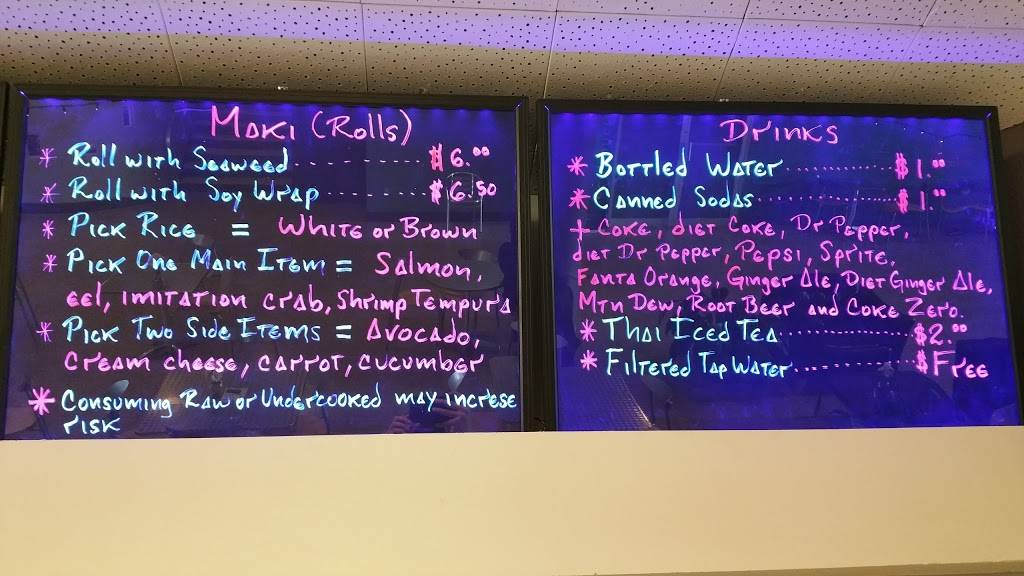 Maki (Rolls)
* Roll with Seaweed ............ $6.00
* Roll with Soy Wrap ............ $6.50
* Pick Rice = White or Brown
* Pick One Main Item = Salmon,
eel, imitation crab, Shrimp Tempura
* Pick Two Side Items = Avocado,
cream cheese, carrot, cucumber
* Consuming Raw or Undercooked may increse
risk
Drinks
* Bottled Water ............ $1.00
* Canned Sodas ............ $1.00
+ Coke, diet Coke, Dr Pepper,
diet Dr Pepper, Pepsi, Sprite,
Fanta Orange, Ginger Ale, Diet Ginger Ale,
Mtn Dew, Root Beer and Coke Zero.
* Thai Iced Tea ............ $2.00
* Filtered Tap Water ............ $Free